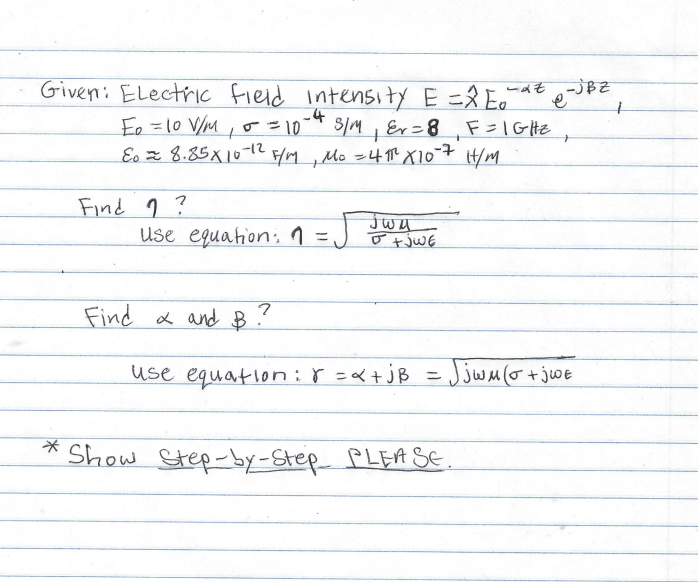 Given: Electric field intensity E = x̂ E₀⁻ᵅᶻ e⁻ʲᵝᶻ,
E₀ = 10 V/M, σ = 10⁻⁴ S/M, εr = 8, F = 1GHz,
ε₀ ≈ 8.85x10⁻¹² F/M, μ₀ = 4π x10⁻⁷ H/M
Find η ?
Use equation: η = √(jωμ / σ + jωε)
Find α and β ?
Use equation: γ = α + jβ = √jωμ(σ + jωε
* Show Step-by-Step PLEASE.